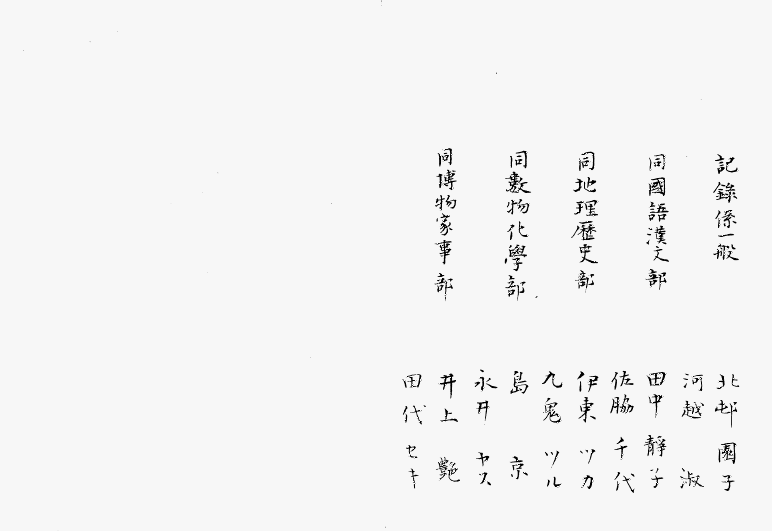 記錄係一般
北邨園子
河越淑
同國語漢文部
田中靜子
佐脇千代
同地理歷史部
伊東ツカ
九鬼ツル
同數物化學部
島京
永井ヤス
同博物家事部
井上艷
田代セキ